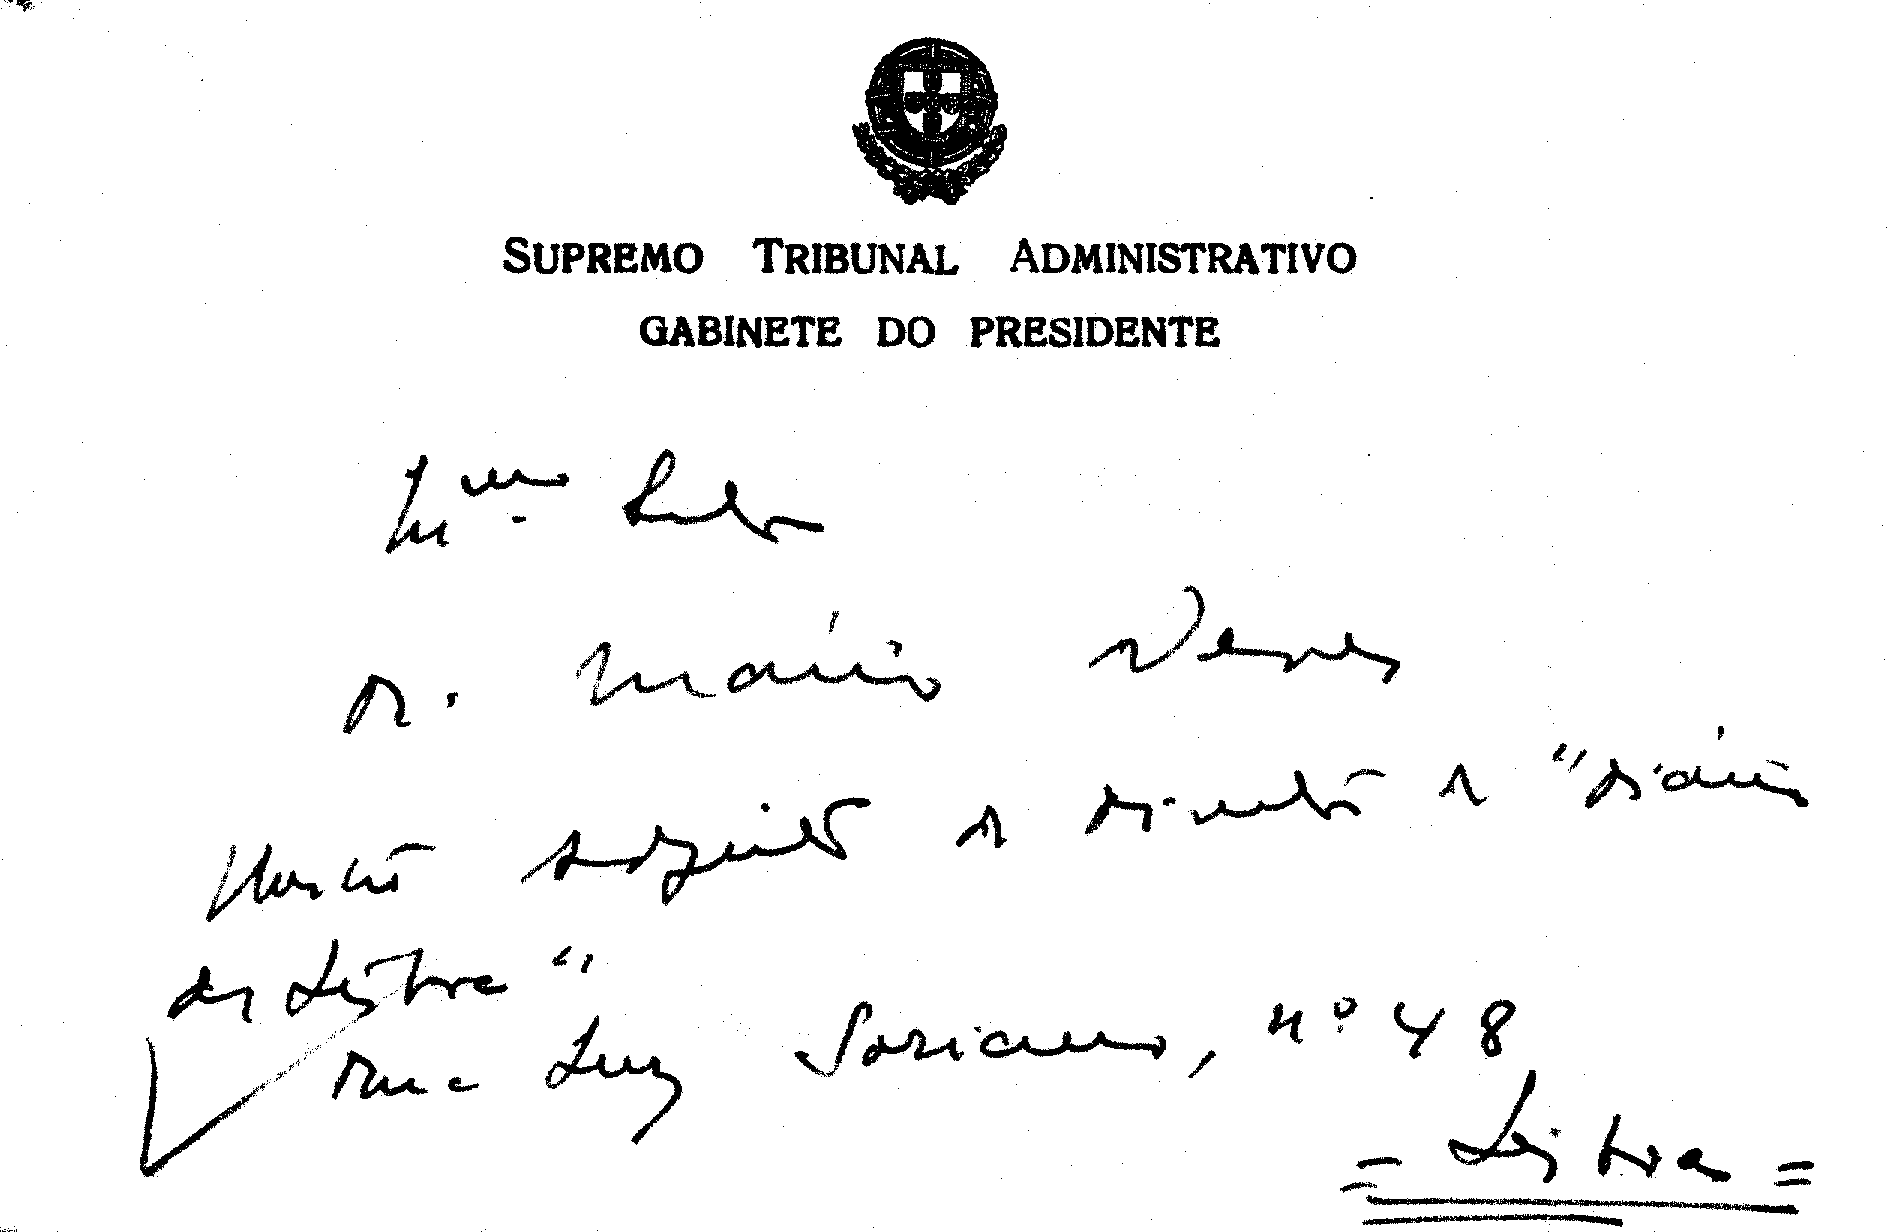 SUPREMO TRIBUNAL ADMINISTRATIVO
GABINETE DO PRESIDENTE
Senhor
Dr. Mário Neves
Ilustre Adjunto do director do "Diário
de Lisboa"
Rua Luz Soriano, nº 48
= Lisboa =